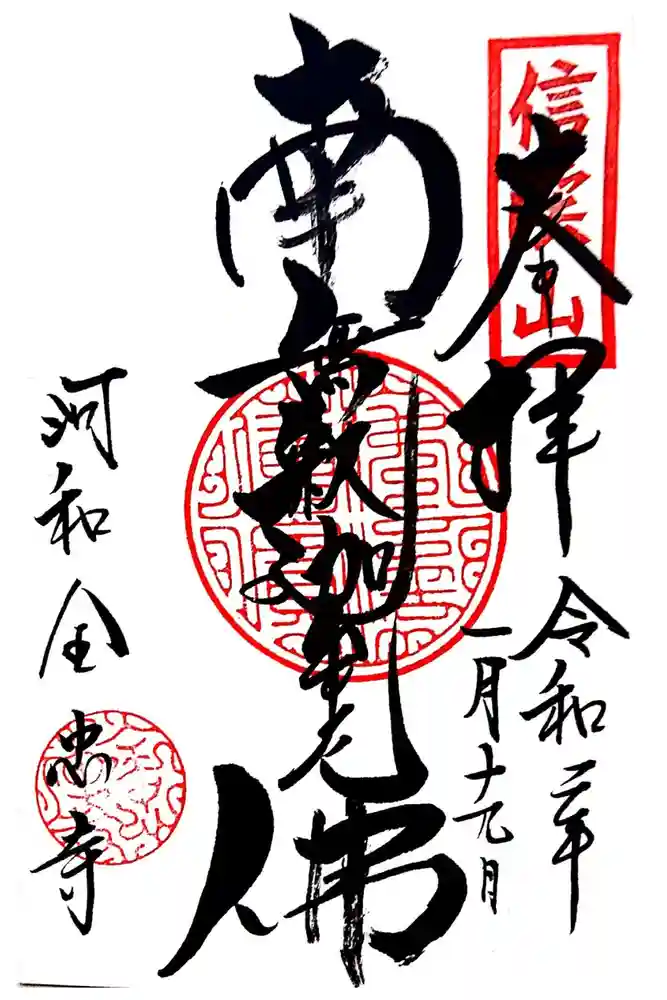 奉拝
令和二年
一月十九日
南無釈迦牟尼佛
河和全忠寺